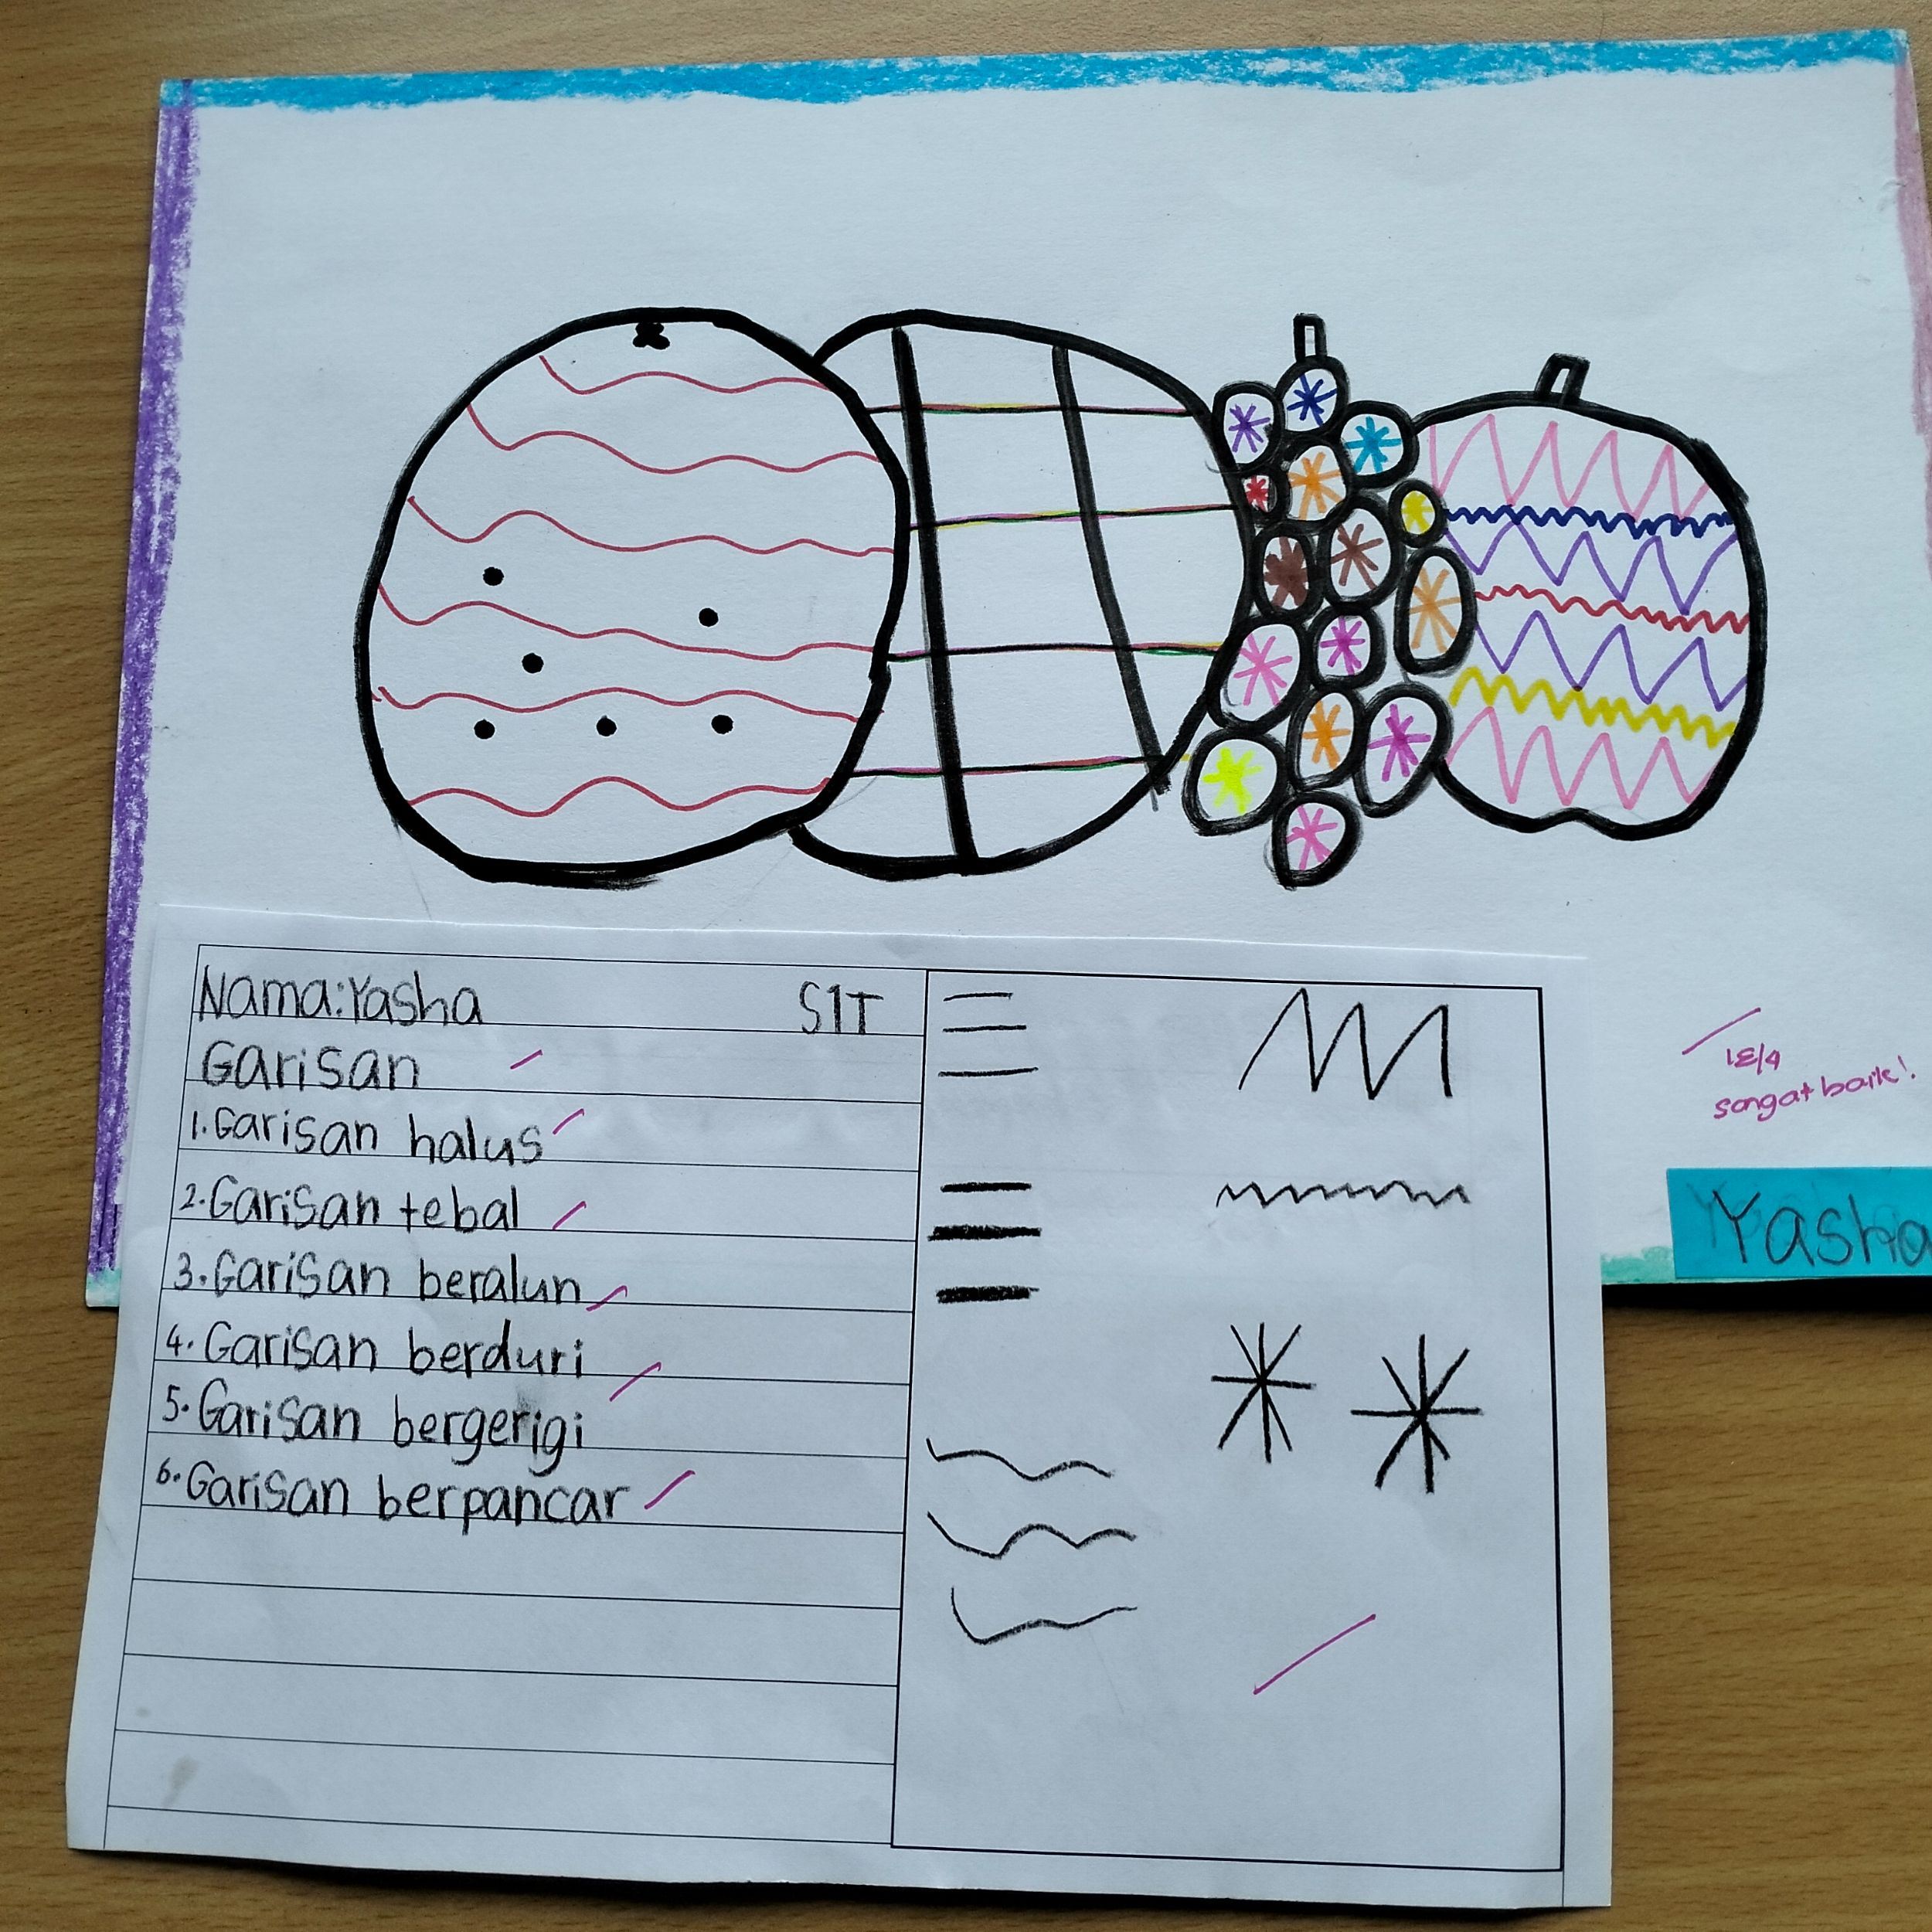 Nama: Yasha S1T
Garisan
1. Garisan halus
2. Garisan tebal
3. Garisan beralun
4. Garisan berduri
5. Garisan bergerigi
6. Garisan berpancar
sangat baik!
Yasha